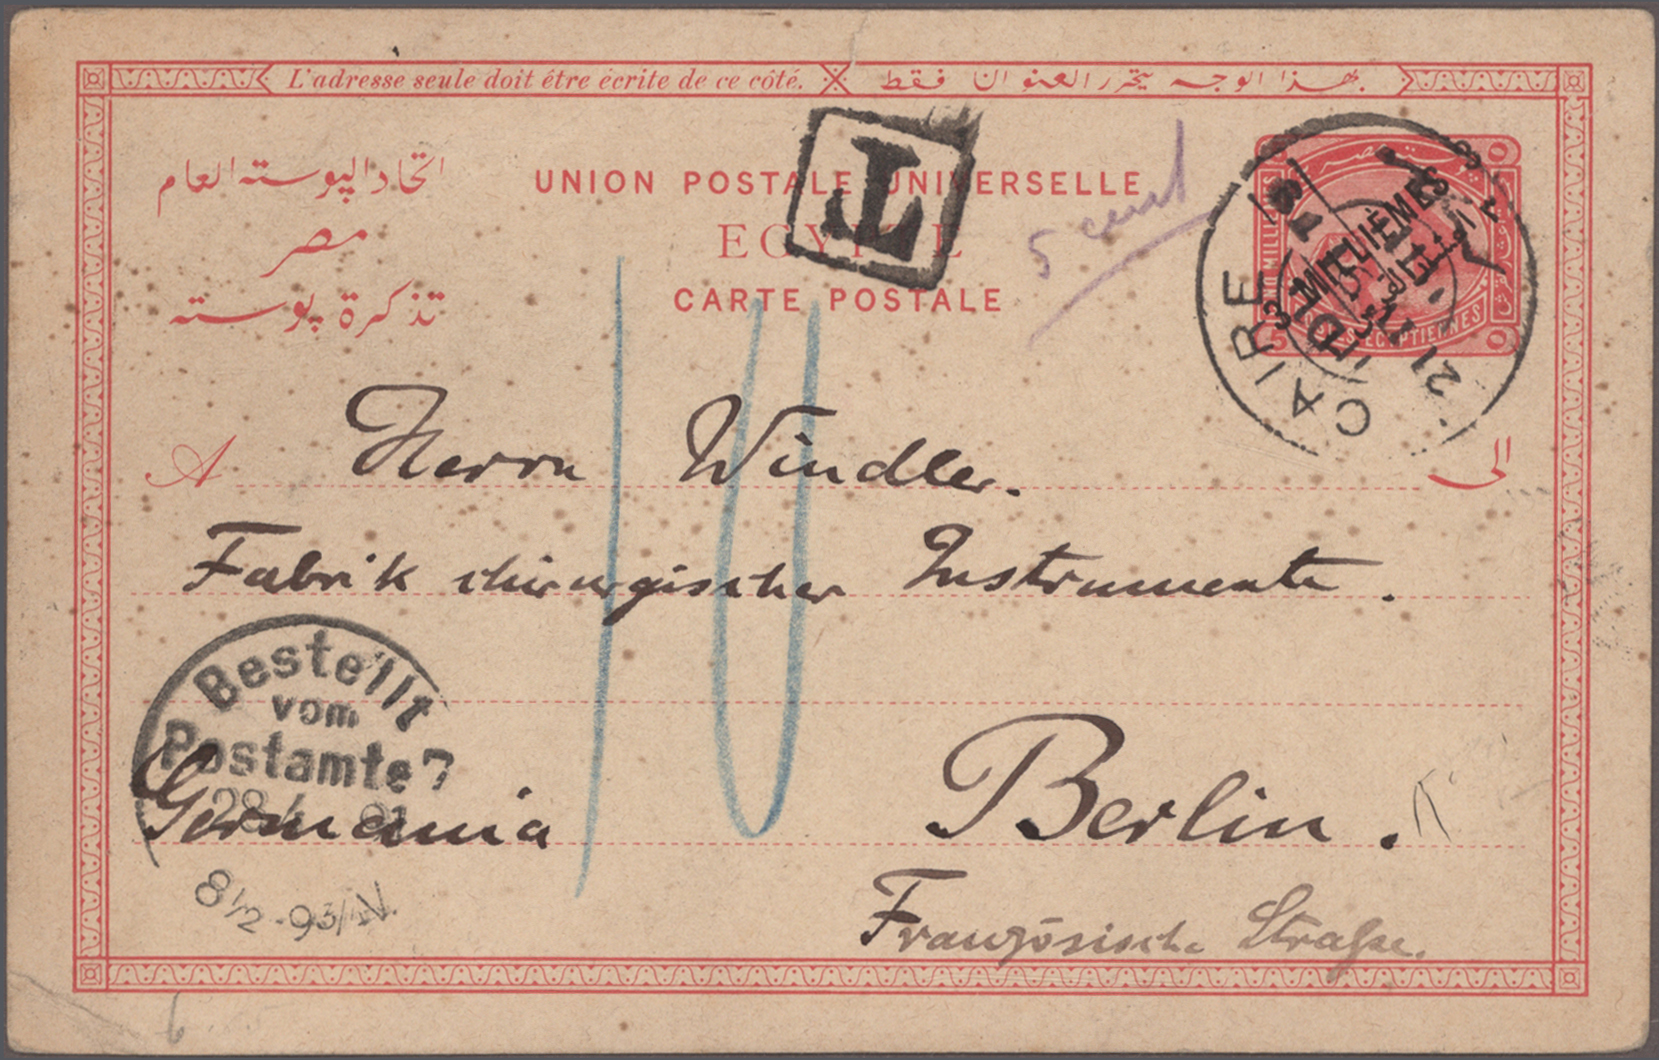 L'adresse seule doit être écrite de ce côté. بهذا الوجه يتحرر العنوان فقط
اتحاد البوسته العام
UNION POSTALE UNIVERSELLE
T
مصر
5 cent
تذكرة بوسته
CARTE POSTALE
CAIRE
3 MILLIÈMES
21
10
A Herrn Windler. الى
Fabrik chirurgischer Instrumente.
Bestellt
vom
Postamte 7
8½-9¾V.
Germania
Berlin.
Französische Straße.